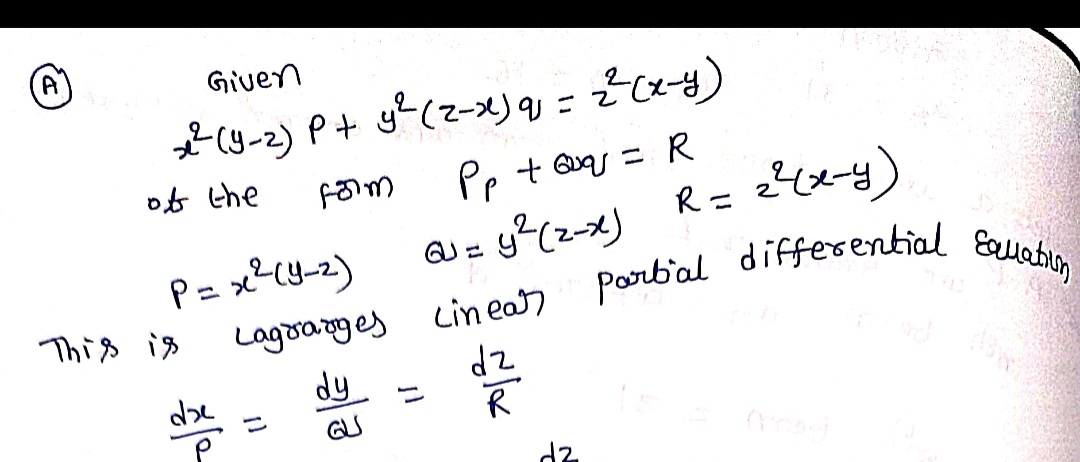 (A) Given
x²(y-z) P + y²(z-x) q = z²(x-y)
of the form Pp + Qq = R
P = x²(y-z) Q = y²(z-x) R = z²(x-y)
This is Lagranges Linear partial differential Equation
dx/P = dy/Q = dz/R
dz